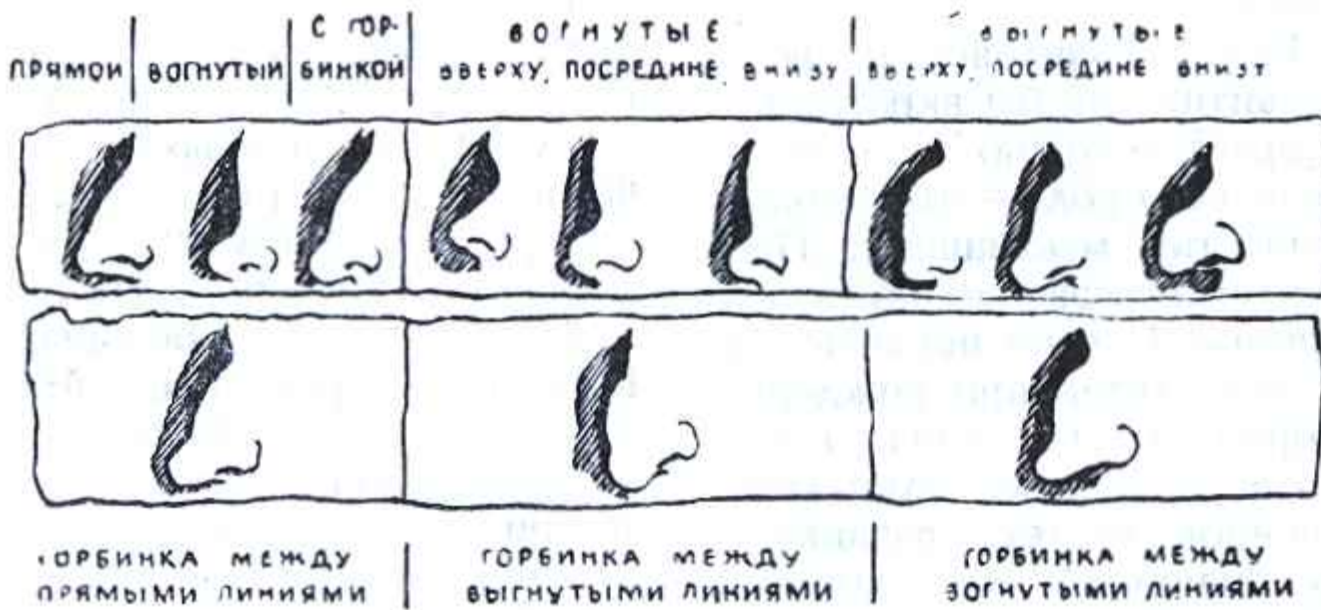 ПРЯМОЙ
ВОГНУТЫЙ
С ГОР-
БИНКОЙ
ВОГНУТЫЕ
ВВЕРХУ, ПОСРЕДИНЕ, ВНИЗУ
ВЫГНУТЫЕ
ВВЕРХУ, ПОСРЕДИНЕ ВНИЗУ
ГОРБИНКА МЕЖДУ
ПРЯМЫМИ ЛИНИЯМИ
ГОРБИНКА МЕЖДУ
ВЫГНУТЫМИ ЛИНИЯМИ
ГОРБИНКА МЕЖДУ
ВОГНУТЫМИ ЛИНИЯМИ